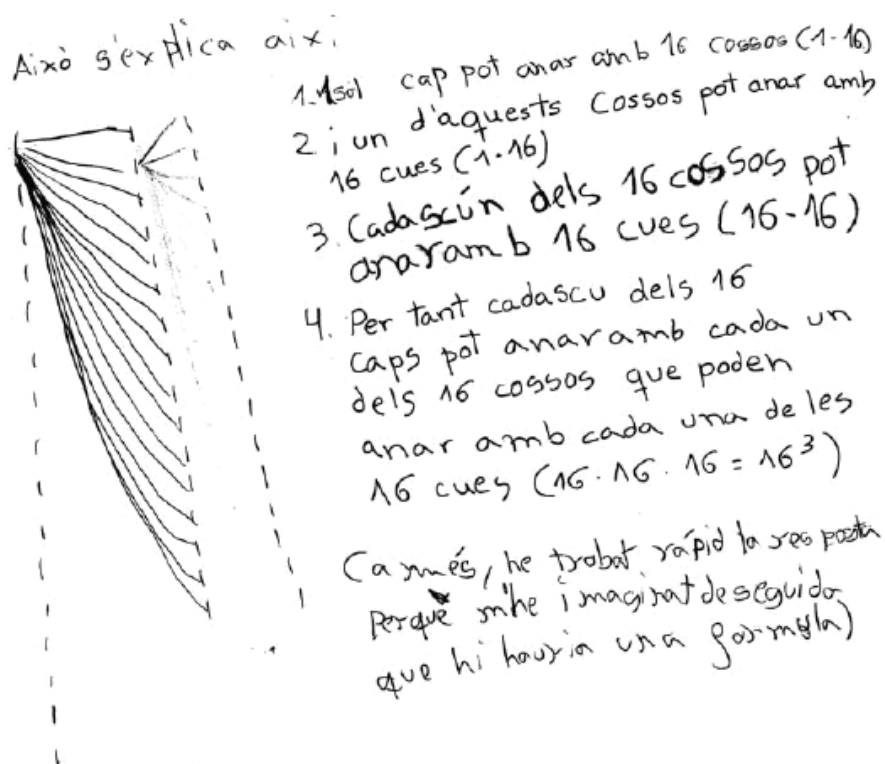 Això s'explica així
1. 1 sol cap pot anar amb 16 cossos (1·16)
2 i un d'aquests cossos pot anar amb
16 cues (1·16)
3. Cadascún dels 16 cossos pot
anar amb 16 cues (16·16)
4. Per tant cadascu dels 16
caps pot anar amb cada un
dels 16 cossos que poden
anar amb cada una de les
16 cues (16·16·16 = 16³)
(a més, he trobat ràpid la resposta
perquè m'he imaginat deseguida
que hi hauria una formula)